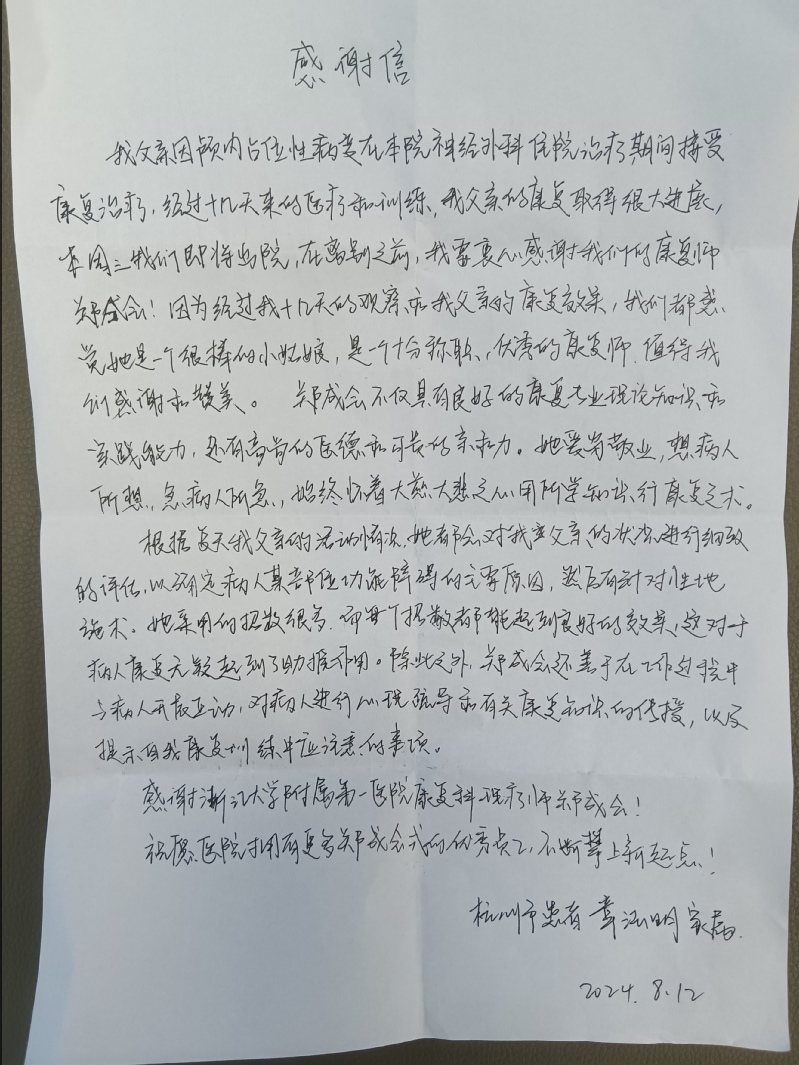 感谢信
我父亲因颅内占位性病变在本院神经外科住院治疗期间接受
康复治疗，经过十几天来的医疗和训练，我父亲的康复取得很大进展，
本周三我们即将出院，在离别之前，我要衷心感谢我们的康复师
郑成会！因为经过我十几天的观察和我父亲的康复效果，我们都感
觉她是一个很棒的小姑娘，是一个十分称职、优秀的康复师，值得我
们感谢和赞美。 郑成会不仅具有良好的康复专业理论知识和
实践能力，还有高尚的医德和可长的亲和力。她爱岗敬业，想病人
所想，急病人所急，始终怀着大慈大悲之心用所学知识行康复之术。
根据每天我父亲的活动情况，她都会对我父亲的状况进行细致
的评估，以确定病人某部位功能障碍的主要原因，然后有针对性地
施术。她采用的招数很多，而每个招数都能起到良好的效果，这对于
病人康复无疑起到了助推作用。除此之外，郑成会还善于在工作过程中
与病人开放互动，对病人进行心理疏导和有关康复知识的传授，以及
提示自我康复训练中应注意的事项。
感谢浙江大学附属第一医院康复科理疗师郑成会！
祝愿医院拥有更多郑成会式的优秀员工，不断攀上新起点！
杭州市患者 章 明家属
2024.8.12